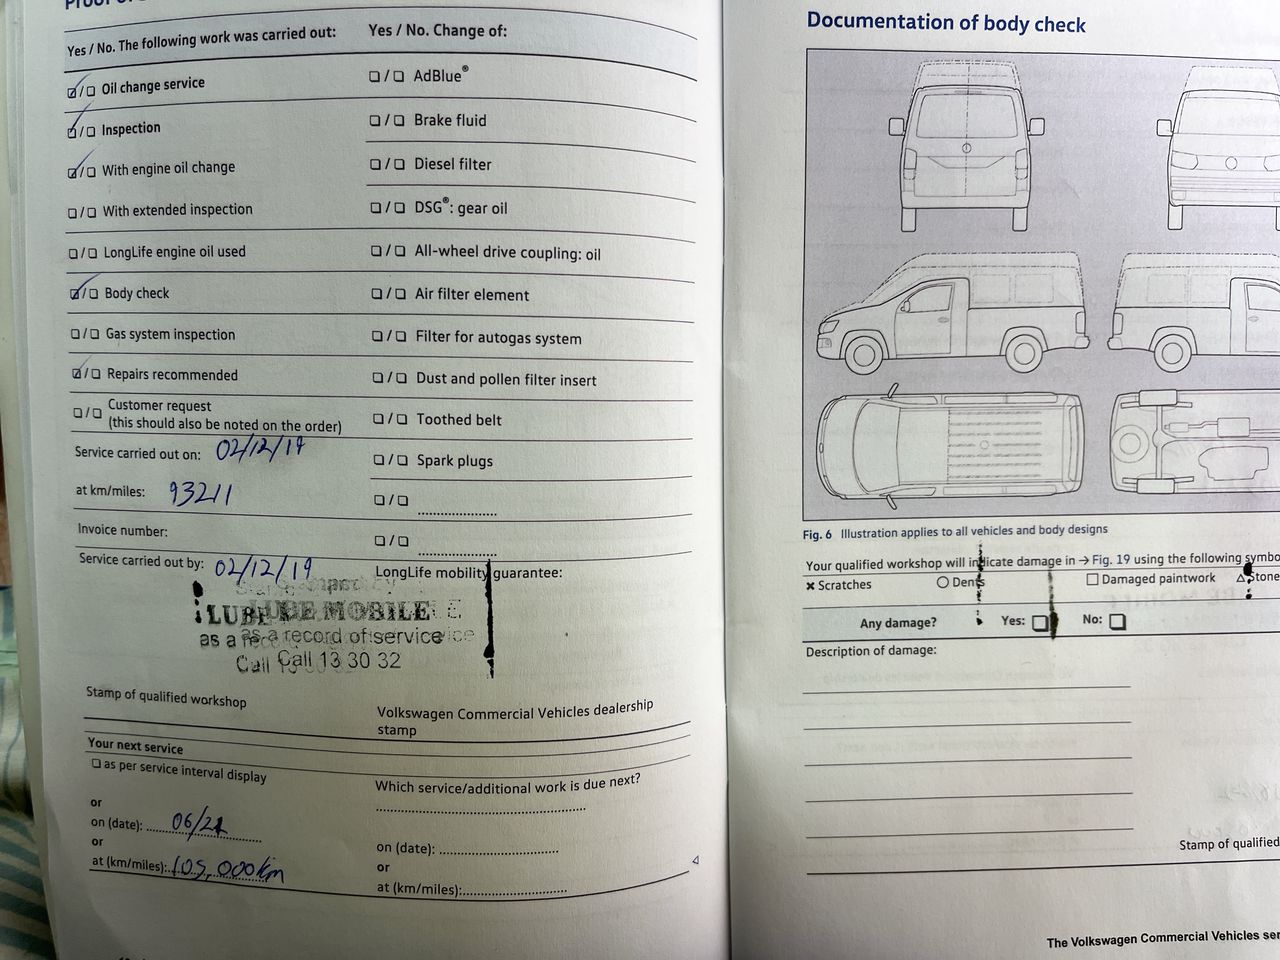 Yes / No. The following work was carried out:
Yes / No. Change of:
☑/☐ Oil change service
☑/☐ Inspection
☑/☐ With engine oil change
☐/☐ With extended inspection
☐/☐ LongLife engine oil used
☑/☐ Body check
☐/☐ Gas system inspection
☑/☐ Repairs recommended
☐/☐ Customer request
(this should also be noted on the order)
Service carried out on: 02/12/19
at km/miles: 93211
Invoice number:
Service carried out by: 02/12/19
LUBE MOBILE
as a record of service
Call 13 30 32
Stamp of qualified workshop
☐/☐ AdBlue®
☐/☐ Brake fluid
☐/☐ Diesel filter
☐/☐ DSG®: gear oil
☐/☐ All-wheel drive coupling: oil
☐/☐ Air filter element
☐/☐ Filter for autogas system
☐/☐ Dust and pollen filter insert
☐/☐ Toothed belt
☐/☐ Spark plugs
☐/☐
☐/☐
LongLife mobility guarantee:
Volkswagen Commercial Vehicles dealership
stamp
Your next service
☐ as per service interval display
or
on (date): 06/21
or
at (km/miles): 105,000km
Which service/additional work is due next?
on (date):
or
at (km/miles):
Documentation of body check
Fig. 6 Illustration applies to all vehicles and body designs
Your qualified workshop will indicate damage in → Fig. 19 using the following
× Scratches ○ Dents ☐ Damaged paintwork △ Stone
Any damage? Yes: ☐ No: ☐
Description of damage:
Stamp of qualified
The Volkswagen Commercial Vehicles